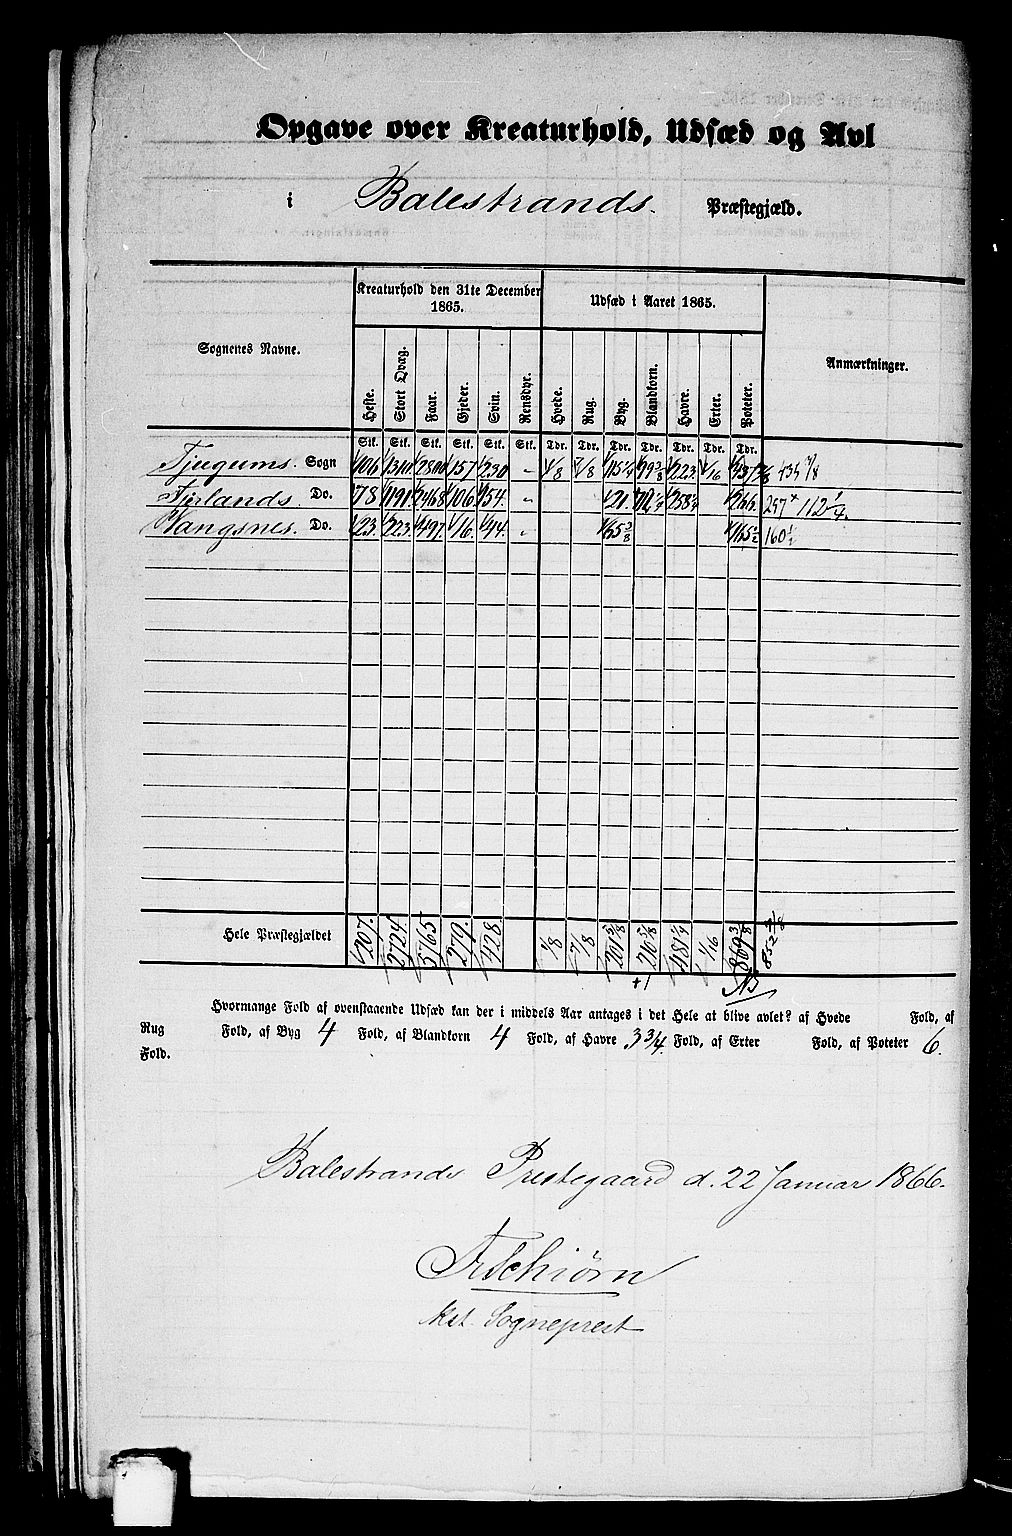 Opgave over Kreaturhold, Udsæd og Avl
i Balestrands. Præstegjæld.
Sognenes Navne.
Kreaturhold den 31te December 1865.
Udsæd i Aaret 1865.
Anmærkninger.
Heste. Stort Qvæg. Faar. Gjeder. Svin. Rensdyr. Hvede. Rug. Byg. Blandkorn. Havre. Erter. Poteter.
Stk. Stk. Stk. Stk. Stk. Stk. Tdr. Tdr. Tdr. Tdr. Tdr. Tdr. Tdr.
Tjugums. Sogn 106 1310 2800 157 230 " 1/8 7/8 115 1/4 99 3/8 223. 1/16 437 7/8
Fjærlands Do. 78 1191 2468 106 154. " 21. 258 1/4 266. 257 + 112 1/4.
Vangsnes. Do. 23. 223. 497. 16. 44. " 65 3/8 165 1/2 160 1/2
Hele Præstegjældet 207. 2724 5765 279. 428. 1/8 7/8 201 5/8 210 5/8 481 1/4 1/16 869 3/8 852 5/8
+1 NB
Hvormange Fold af ovenstaaende Udsæd kan der i middels Aar antages i det Hele at blive avlet? af Hvede Fold, af
Rug Fold, af Byg 4 Fold, af Blandkorn 4 Fold, af Havre 3 3/4. Fold, af Erter Fold, af Poteter 6.
Fold.
Balestrands Prestegaard d. 22 Januar 1866.
Kst. Sogneprest